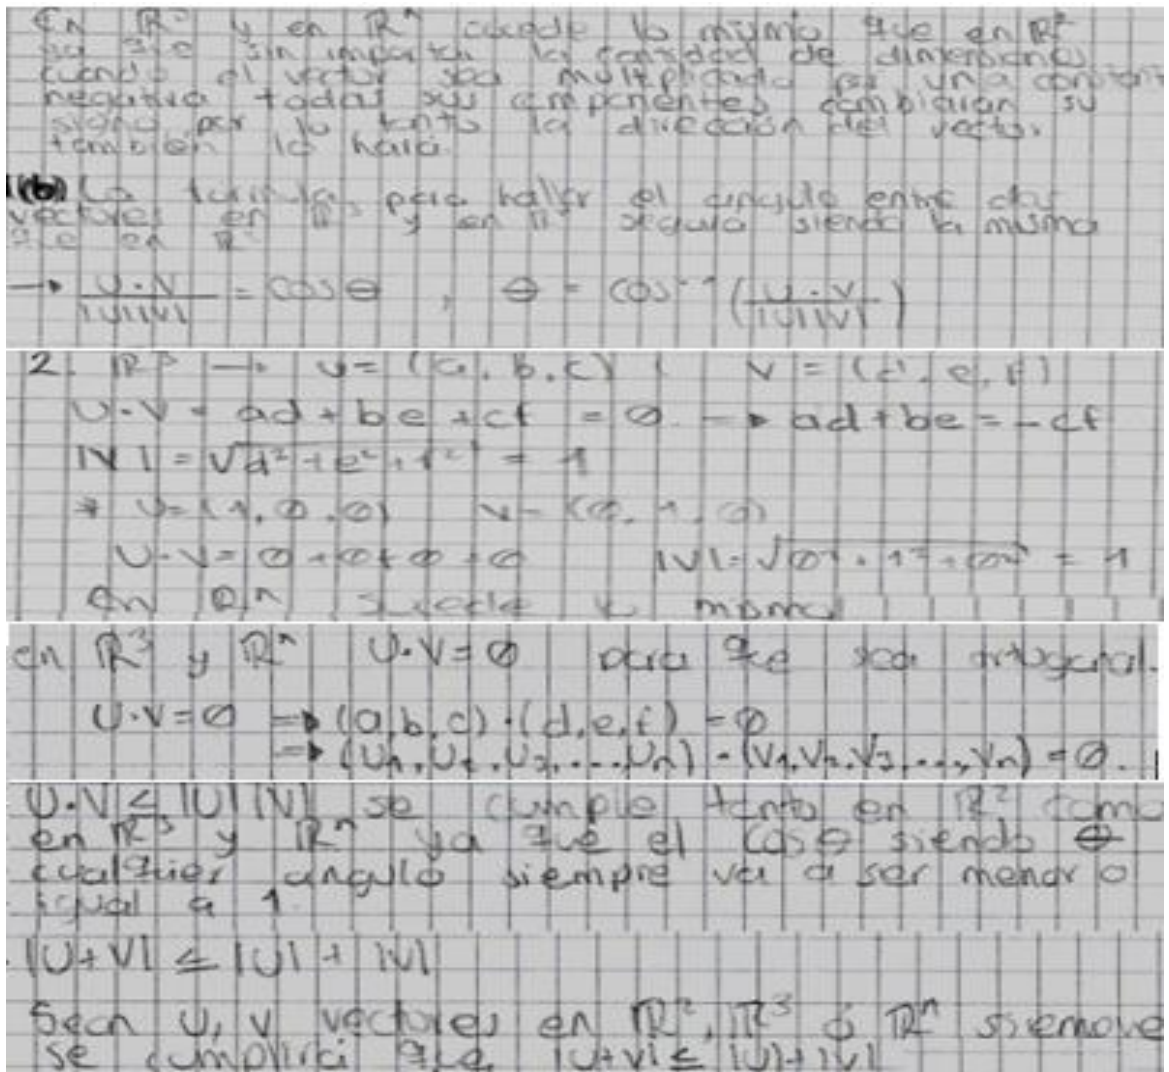 En R³ y en Rⁿ sucede lo mismo que en R²
ya que sin importar la cantidad de dimensiones
cuando el vector sea multiplicado por una constant
negativa todas sus componentes cambiaran su
signo por lo tanto la dirección del vector
tambien lo hará.
1(b) La formula para hallar el angulo entre dos
vectores en R³ y en Rⁿ seguira siendo la misma
que en R²
→ U·V / |U||V| = cos θ , θ = cos⁻¹ (U·V / |U||V|)
2. R³ → U = (a, b, c) V = (d, e, f)
U·V = ad + be + cf = 0 → ad + be = -cf
|V| = √d² + e² + f² = 1
* U = (1, 0, 0) V = (0, 1, 0)
U·V = 0 + 0 + 0 = 0 |V| = √0² + 1² + 0² = 1
en Rⁿ sucede lo mismo
en R³ y Rⁿ U·V = 0 para que sea ortogonal.
U·V = 0 ⇒ (a, b, c) · (d, e, f) = 0
⇒ (U₁, U₂, U₃, ..., Uₙ) · (V₁, V₂, V₃, ..., Vₙ) = 0.
U·V ≤ |U| |V| se cumple tanto en R² como
en R³ y Rⁿ ya que el cos θ siendo θ
cualquier angulo siempre va a ser menor o
igual a 1.
|U + V| ≤ |U| + |V|
Sean U, V vectores en R², R³ ó Rⁿ siempre
se cumplirá que |U+V| ≤ |U| + |V|